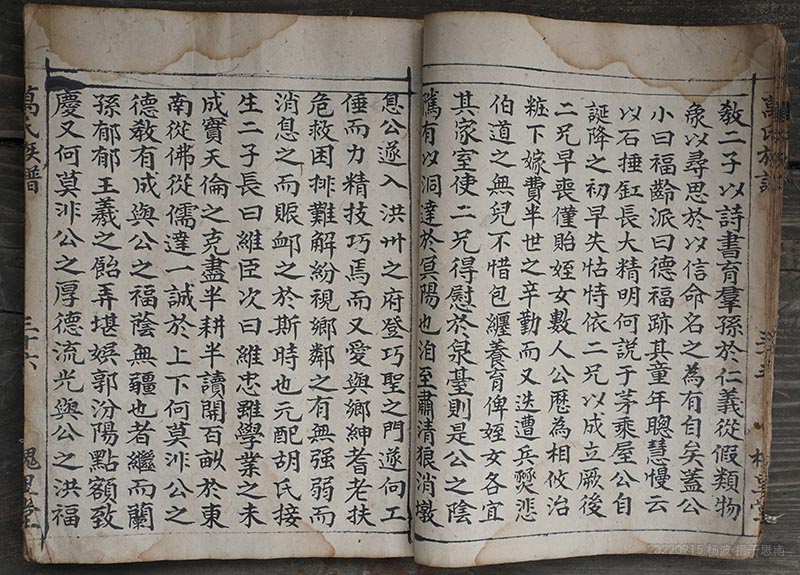 萬氏族譜
教二子以詩書育羣孫於仁義從假類物
象以尋思於以信命名之為有自矣蓋公
小曰福齡派曰德福跡其童年聰慧慢云
以石捶缸長大精明何説于茅乘屋公自
誕降之初早失怙恃依二兄以成立厥後
二兄早喪僅貽姪女數人公歷為相攸治
粧下嫁費半世之辛勤而又迭遭兵燹悲
伯道之無兒不惜包纏養育俾姪女各宜
其家室使二兄得慰於泉臺則是公之陰
隲有以洞達於冥陽也洎至肅清狼消墩
息公遂入洪州之府登巧聖之門遂向工
倕而力精技巧焉而又愛與鄉紳耆老扶
危救困排難解紛視鄉鄰之有無强弱而
消息之而賑卹之於斯時也元配胡氏接
生二子長曰維臣次曰維忠雖學業之未
成實天倫之克盡半耕半讀開百畝於東
南從佛從儒達一誠於上下何莫非公之
德教有成與公之福蔭無疆也者繼而蘭
孫郁郁王羲之飴弄堪娯郭汾陽點額致
慶又何莫非公之厚德流光與公之洪福
萬氏族譜
三十六
槐里堂
20220915 杨波 摄于思南